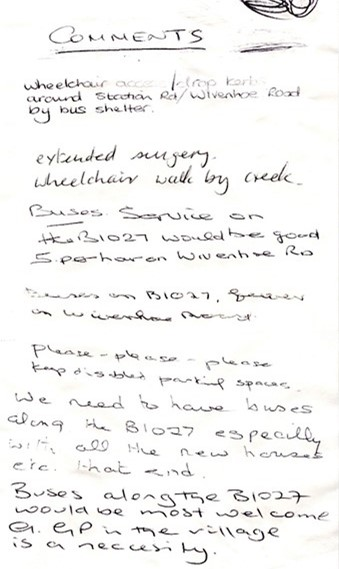 COMMENTS
wheelchair access/drop kerb
around Station Rd/Wivenhoe Road
by bus shelter.
extended surgery.
wheelchair walk by creek.
Buses. Service on
the B1027 would be good
5 per hour on Wivenhoe Rd
Buses on B1027, fewer
on Wivenhoe Road.
Please - please - please
keep disabled parking spaces.
We need to have buses
along the B1027 especilly
with all the new houses
etc. that end.
Buses along the B1027
would be most welcome
GP in the village
is a neccesity.